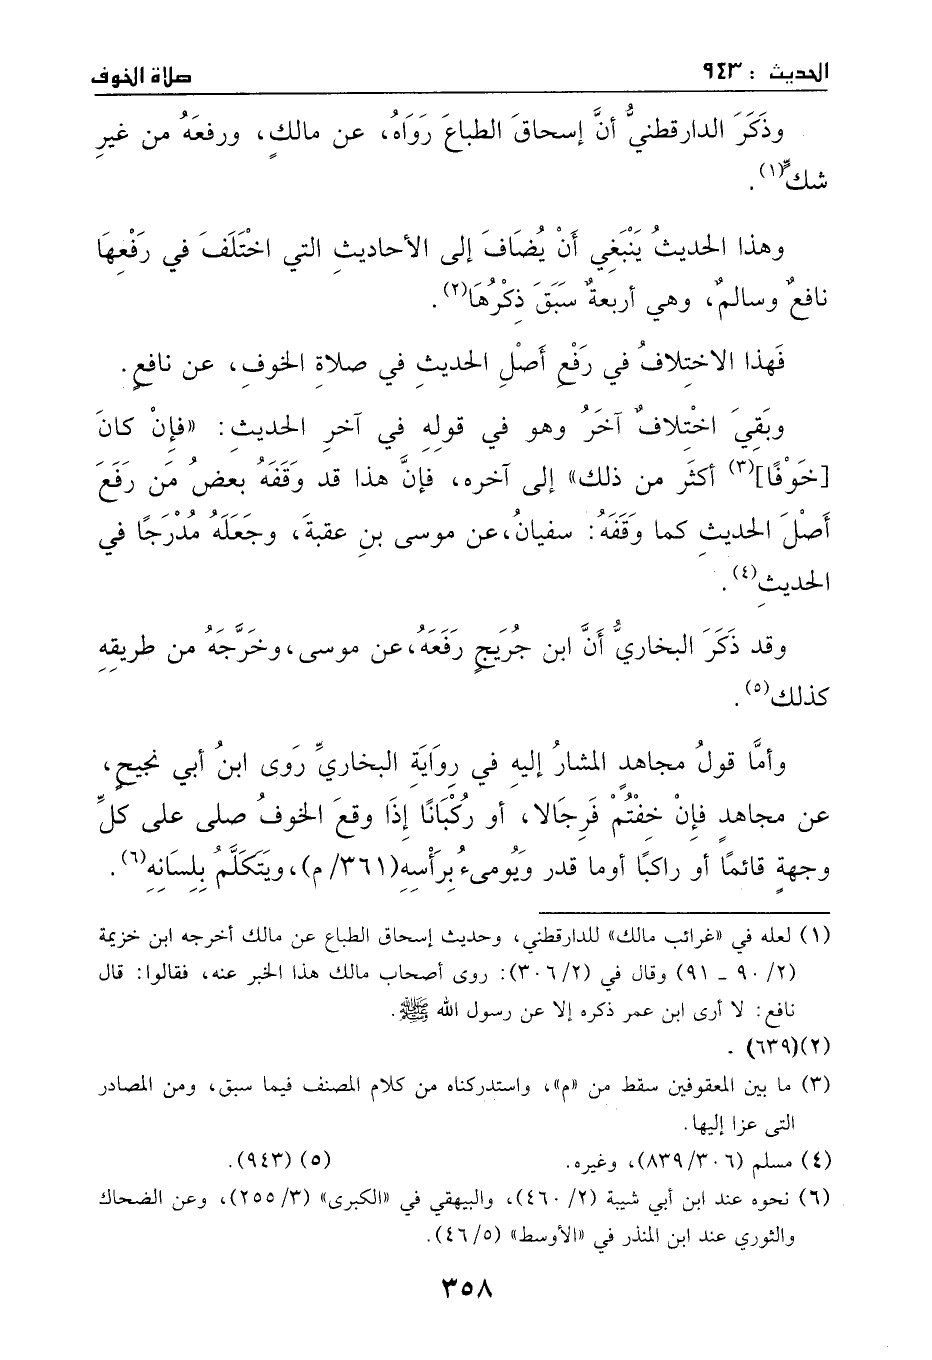 الحديث : ٩٤٣
صلاة الخوف
وذَكَرَ الدارقطنيُّ أنَّ إسحاقَ الطباعَ رَوَاهُ، عن مالكٍ، ورفعَهُ من غيرِ
شكٍّ(١).
وهذا الحديثُ يَنْبَغِي أَنْ يُضَافَ إلى الأحاديثِ التي اخْتَلَفَ في رَفْعِهَا
نافعٌ وسالمٌ، وهي أربعةٌ سَبَقَ ذِكْرُهَا(٢).
فَهذا الاختِلافُ في رَفْعِ أَصْلِ الحديثِ في صلاةِ الخوفِ، عن نافعٍ.
وبَقِيَ اخْتِلافٌ آخَرُ وهو في قولِهِ في آخرِ الحديثِ: «فإنْ كانَ
[خَوْفًا](٣) أكثَر من ذلك» إلى آخره، فإنَّ هذا قد وَقَفَهُ بعضُ مَن رَفَعَ
أَصْلَ الحديثِ كما وَقَفَهُ: سفيانُ، عن موسى بنِ عقبةَ، وجَعَلَهُ مُدْرَجًا في
الحديثِ(٤).
وقد ذَكَرَ البخاريُّ أَنَّ ابن جُرَيجٍ رَفَعَهُ، عن موسى، وخَرَّجَهُ من طريقِهِ
كذلك(٥).
وأمَّا قولُ مجاهدٍ المشارُ إليهِ في رِوَايَةِ البخاريِّ رَوى ابنُ أبي نجيحٍ،
عن مجاهدٍ فإنْ خِفْتُمْ فَرِجَالا، أو رُكْبَانًا إذَا وقعَ الخوفُ صلى على كلِّ
وجهةٍ قائمًا أو راكبًا أوما قدر وَيُومىءُ بِرَأْسِهِ (٣٦١/ م)، ويَتَكَلَّمُ بِلِسَانِهِ(٦).
(١) لعله في «غرائب مالك» للدارقطني، وحديث إسحاق الطباع عن مالك أخرجه ابن خزيمة
(٢/ ٩٠ ـ ٩١) وقال في (٢/ ٣٠٦): روى أصحاب مالك هذا الخبر عنه، فقالوا: قال
نافع: لا أرى ابن عمر ذكره إلا عن رسول الله ﷺ.
(٢)(٦٣٩) .
(٣) ما بين المعقوفين سقط من «م»، واستدركناه من كلام المصنف فيما سبق، ومن المصادر
التي عزا إليها.
(٤) مسلم (٨٣٩/٣٠٦)، وغيره.
(٥) (٩٤٣).
(٦) نحوه عند ابن أبي شيبة (٢/ ٤٦٠)، والبيهقي في «الكبرى» (٣/ ٢٥٥)، وعن الضحاك
والثوري عند ابن المنذر في «الأوسط» (٥/ ٤٦).
٣٥٨